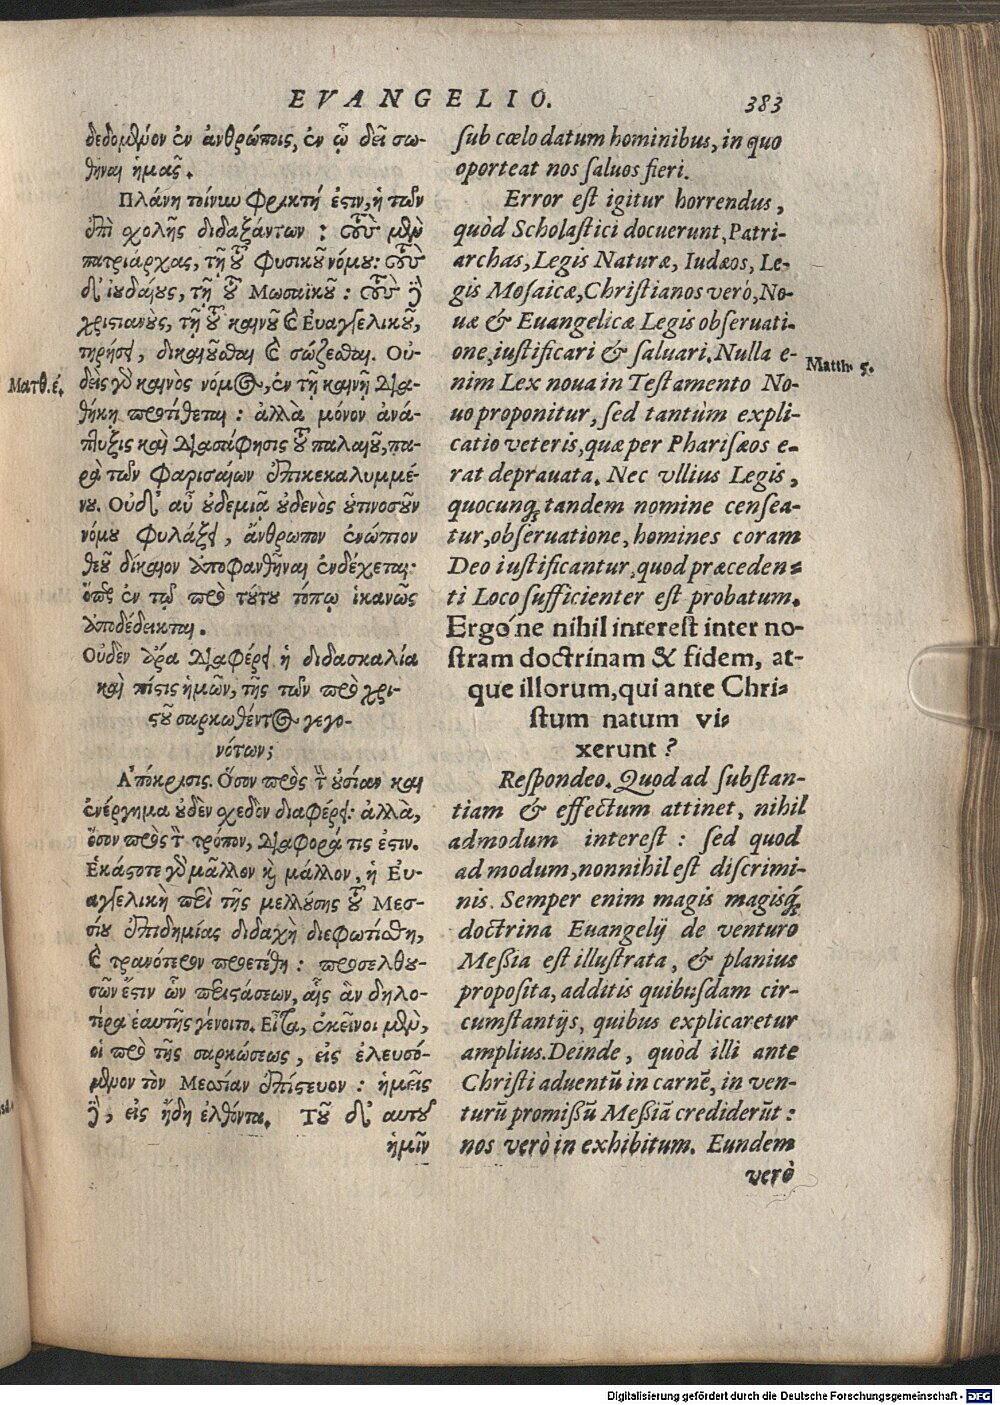 EVANGELIO. 383
δεδομένον ἐν ἀνθρώποις, ἐν ᾧ δεῖ σω-
θῆναι ἡμᾶς.
Πλάνη τοίνυν φρικτή ἐστιν, ἡ τῶν
ἐπὶ σχολῆς διδαξάντων : τοὺς μὲν
πατριάρχας, τῇ τοῦ φυσικοῦ νόμου: τοὺς
δ' ἰουδαίους, τῇ τοῦ Μωσαϊκοῦ : τοὺς δὲ
χριστιανοὺς, τῇ τοῦ καινοῦ καὶ Ευαγγελικοῦ,
τηρήσει, δικαιοῦσθαι καὶ σώζεσθαι. Οὐ-
Ματθ. έ. δεὶς γὰρ καινὸς νόμος, ἐν τῇ καινῇ Δια-
θήκῃ προτίθεται : ἀλλὰ μόνον ἀνά-
πτυξις καὶ Διασάφησις τοῦ παλαιοῦ, πα-
ρὰ τῶν Φαρισαίων ἐπικεκαλυμμέ-
νου. Οὐδ' αὖ οὐδεμιᾷ οὐδενὸς οὑτινοσοῦν
νόμου φυλάξει, ἄνθρωπον ἐνώπιον
θεοῦ δίκαιον ἀποφανθῆναι ἐνδέχεται:
ὅπερ ἐν τῷ πρὸ τούτου τόπῳ ἱκανῶς
ἀποδέδεικται.
Οὐδὲν ἄρα Διαφέρει ἡ διδασκαλία
καὶ πίστις ἡμῶν, τῆς τῶν πρὸ χρι-
στοῦ σαρκωθέντος γεγο-
νότων;
Ἀπόκρισις. Ὅσον πρὸς τὴν οὐσίαν καὶ
ἐνέργημα οὐδὲν σχεδὸν διαφέρει: ἀλλὰ,
ὅσον πρὸς τὸν τρόπον, Διαφορά τις ἐστιν.
Ἑκάστοτε γὰρ μᾶλλον καὶ μάλλον, ἡ Ευ-
αγγελικὴ περὶ τῆς μελλούσης τοῦ Μεσ-
σίου ἐπιδημίας διδαχὴ διεφωτίσθη,
καὶ τρανότερον προετέθη : προσελθου-
σῶν ἔστιν ὧν περιστάσεων, αἷς ἂν δηλο-
τέρα ἑαυτῆς γένοιτο. Εἶτα, ἐκεῖνοι μὲν,
οἱ πρὸ τῆς σαρκώσεως, εἰς ἐλευσό-
μενον τὸν Μεσσίαν ἐπίστευον : ἡμεῖς
δὲ, εἰς ἤδη ἐλθόντα. Τοῦ δ' αὐτοῦ
ἡμῖν
sub cœlo datum hominibus, in quo
oporteat nos saluos fieri.
Error est igitur horrendus,
quòd Scholastici docuerunt, Patri-
archas, Legis Naturæ, Iudæos, Le-
gis Mosaicæ, Christianos verò, No-
uæ & Euangelicæ Legis obseruati-
one, iustificari & saluari. Nulla e- Matth. 5.
nim Lex noua in Testamento No-
uo proponitur, sed tantùm expli-
catio veteris, quæ per Pharisæos e-
rat deprauata. Nec vllius Legis,
quocunq; tandem nomine censea-
tur, obseruatione, homines coram
Deo iustificantur, quod præceden-
ti Loco sufficienter est probatum.
Ergo'ne nihil interest inter no-
stram doctrinam & fidem, at-
que illorum, qui ante Chri-
stum natum vi-
xerunt?
Respondeo. Quod ad substan-
tiam & effectum attinet, nihil
admodum interest : sed quod
ad modum, nonnihil est discrimi-
nis. Semper enim magis magisq;
doctrina Euangelij de venturo
Meßia est illustrata, & planius
proposita, additis quibusdam cir-
cumstantijs, quibus explicaretur
amplius. Deinde, quòd illi ante
Christi aduentũ in carnẽ, in ven-
turũ promißũ Meßiã crediderũt :
nos verò in exhibitum. Eundem
verò
Digitalisierung gefördert durch die Deutsche Forschungsgemeinschaft - DFG